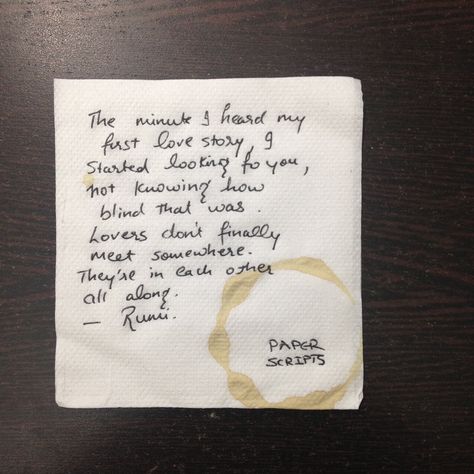 The minute I heard my
first love story, I
Started looking fo you,
not knowing how
blind that was.
Lovers don't finally
meet somewhere.
They're in each other
all along.
— Rumi.
PAPER
SCRIPTS